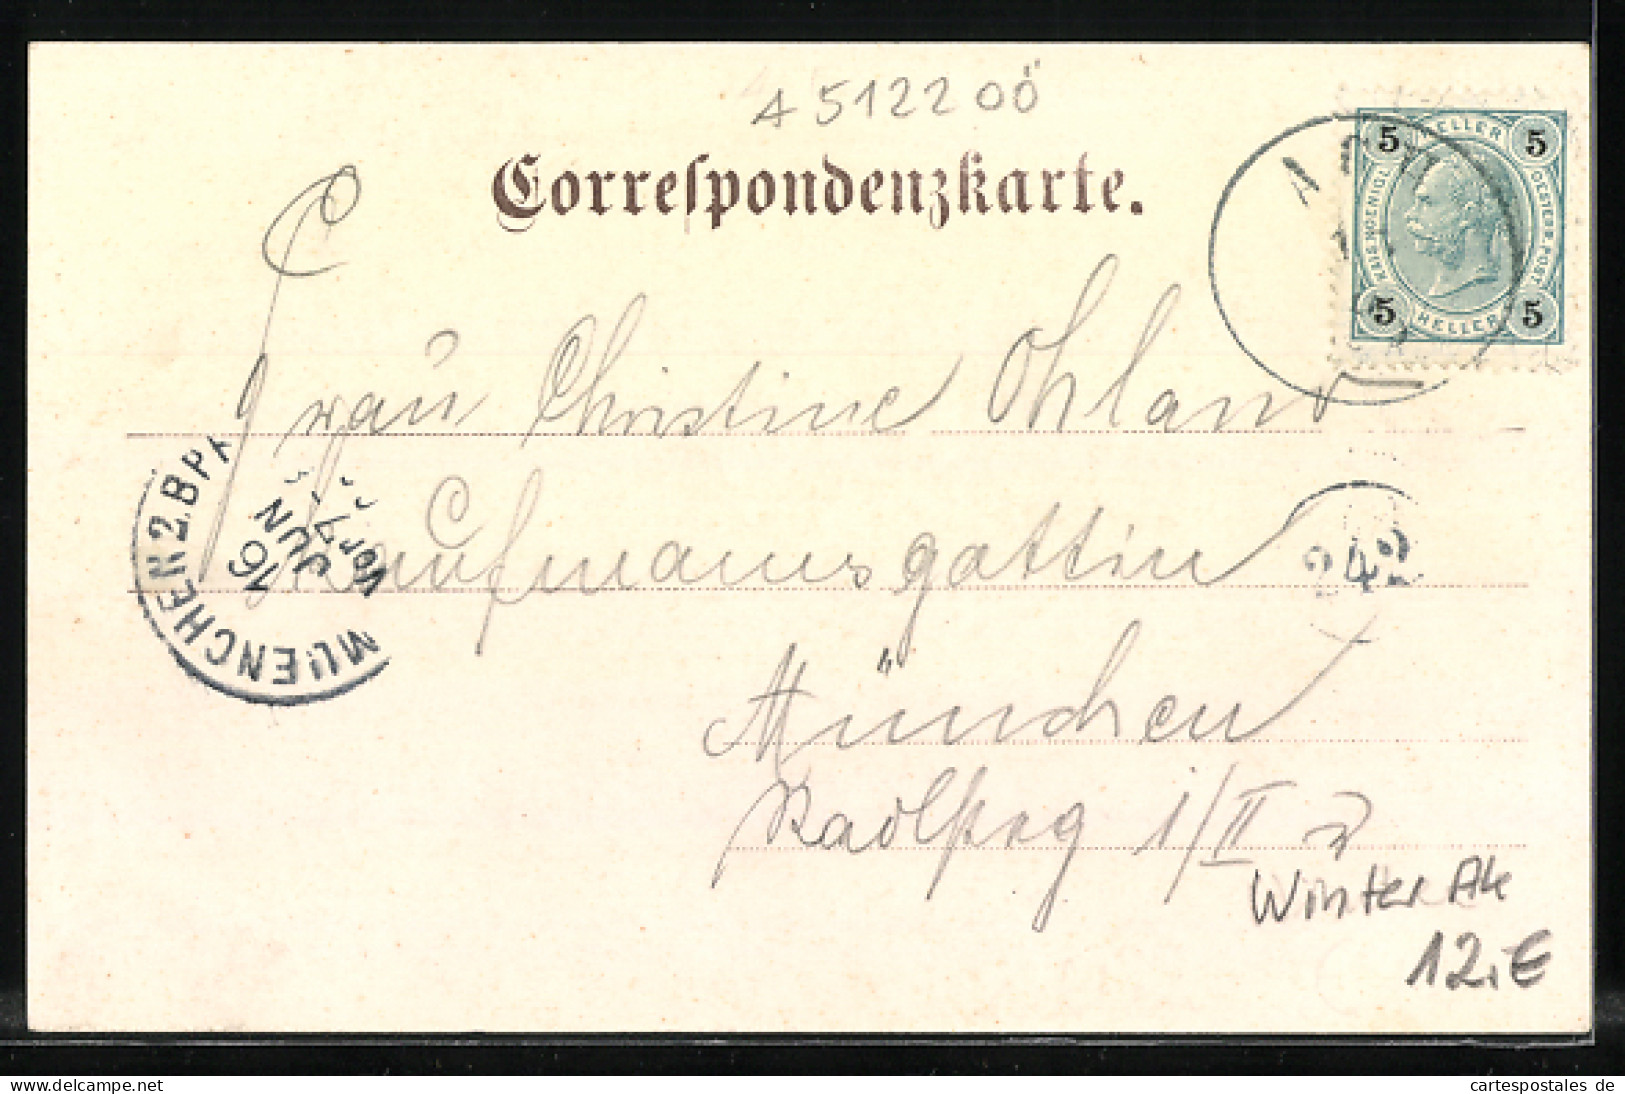 A 5122 OÖ
Correspondenzkarte.
5 HELLER 5
KAIS. KOENIGL. OESTERR. POST
5 HELLER 5
Frau Christine Ohland
Kaufmannsgattin
München
i/II
MUENCHEN 2. B.P.A
16
JUN
Vor. 7
Winter Ak
12.€
delcampe.net
cartespostales de